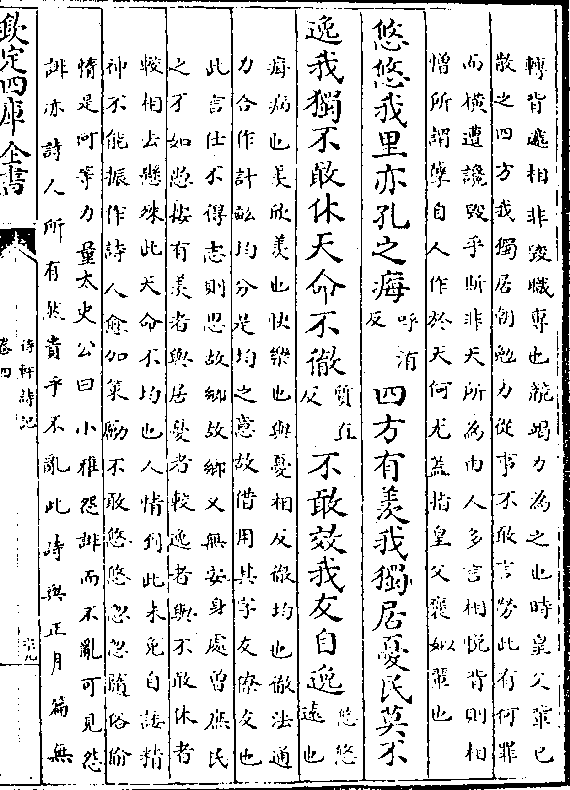 轉背遞相非毀職專也競竭力為之也時皇父輩已
散之四方我獨居朝勉力從事不敢言勞此有何罪
而橫遭讒毀乎斯非天所為由人多言相悅背則相
憎所謂孽自人作於天何尤蓋指皇父褒姒輩也
悠悠我里亦孔之痗呼洧反四方有羨我獨居憂民莫不
逸我獨不敢休天命不徹質直反不敢效我友自逸悠悠遠也
痗病也羨欣羨也快樂也與憂相反徹均也徹法通
力合作計畝均分是均之意故借用其字友僚友也
此言仕不得志則思故鄉故鄉又無安身處曾庶民
之不如悠悠有羨者與居憂者較逸者與不敢休者
較相去懸殊此天命不均也人情到此未免自諉精
神不能振作詩人愈加策勵不敢悠悠忽忽隨俗偷
惰是何等力量太史公曰小雅怨誹而不亂可見怨
誹亦詩人所有然貴乎不亂此詩與正月篇無
欽定四庫全書
待軒詩記
卷四